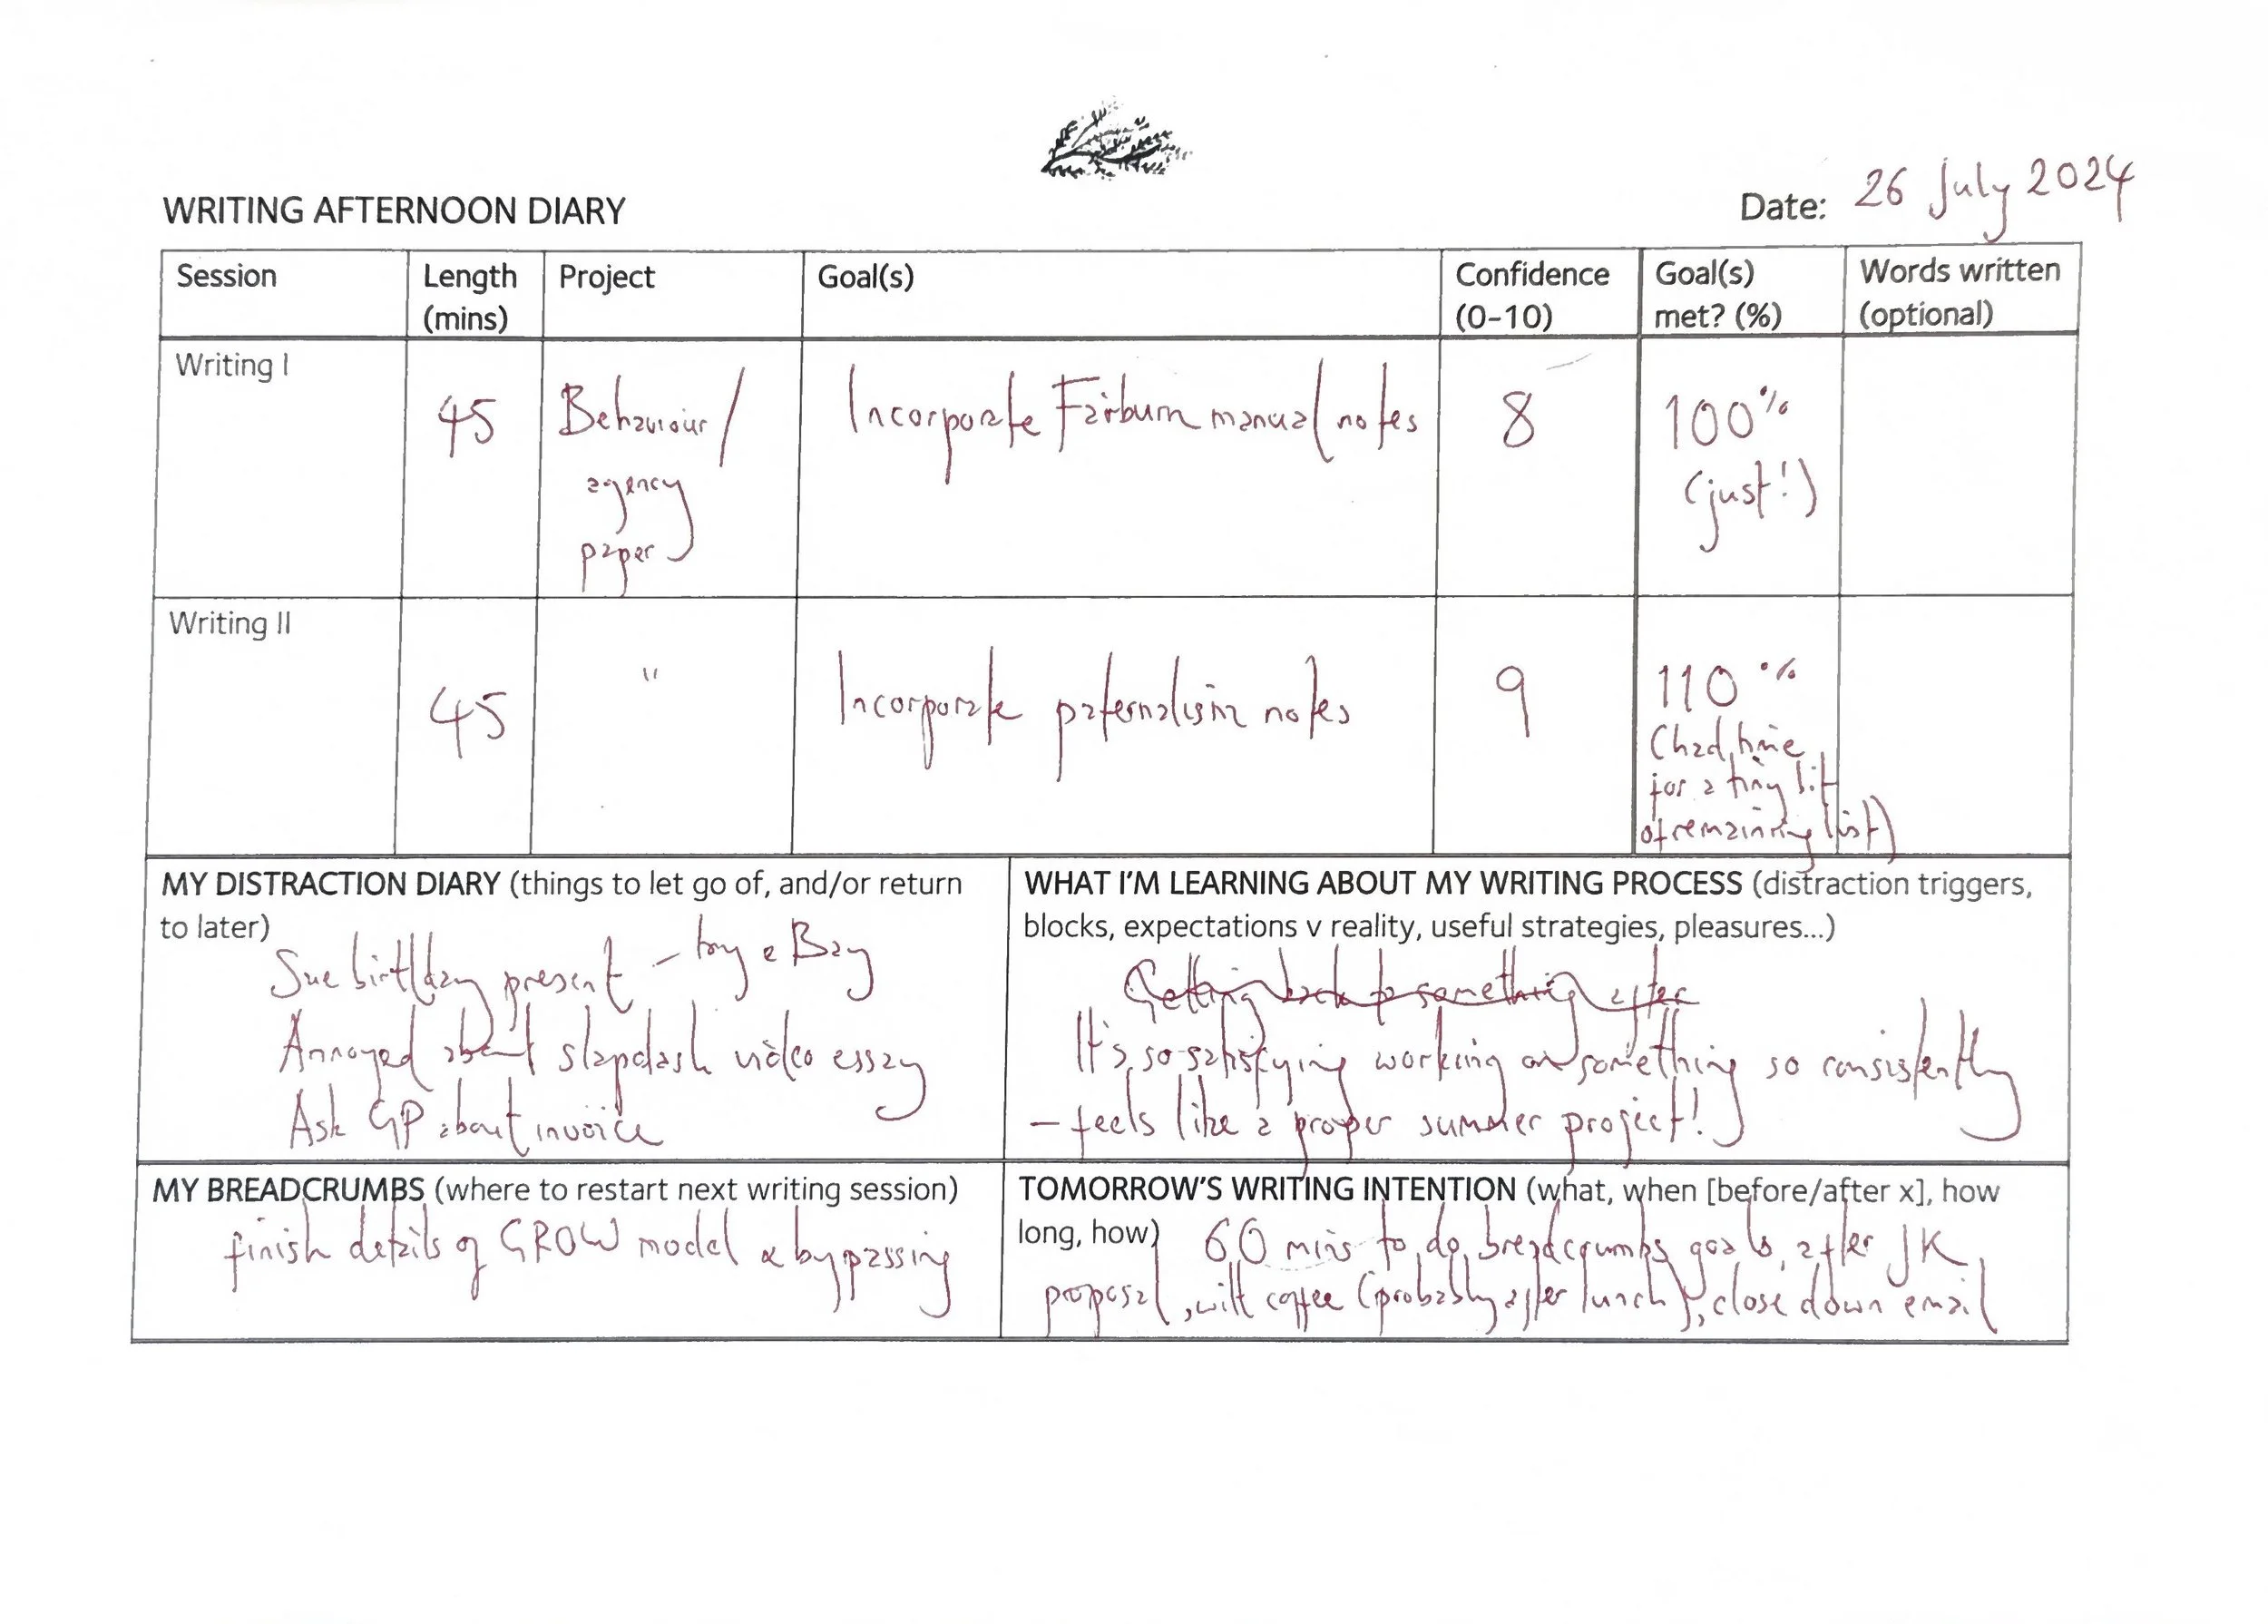 WRITING AFTERNOON DIARY
Date: 26 July 2024
Session
Length (mins)
Project
Goal(s)
Confidence (0-10)
Goal(s) met? (%)
Words written (optional)
Writing I
45
Behaviour/
agency
paper
Incorporate Fairburn manual notes
8
100%
(just!)
Writing II
45
"
Incorporate paternalism notes
9
110%
(had time
for a tiny bit
of remaining list)
MY DISTRACTION DIARY (things to let go of, and/or return
to later)
Sue birthday present – try eBay
Annoyed about slapdash video essay
Ask GP about invoice
WHAT I'M LEARNING ABOUT MY WRITING PROCESS (distraction triggers,
blocks, expectations v reality, useful strategies, pleasures...)
Getting back to something after
It's so satisfying working on something so consistently
– feels like a proper summer project!
MY BREADCRUMBS (where to restart next writing session)
finish details of GROW model & bypassing
TOMORROW'S WRITING INTENTION (what, when [before/after x], how
long, how) 60 mins to do breadcrumbs goals, after JK
proposal, with coffee (probably after lunch), close down email